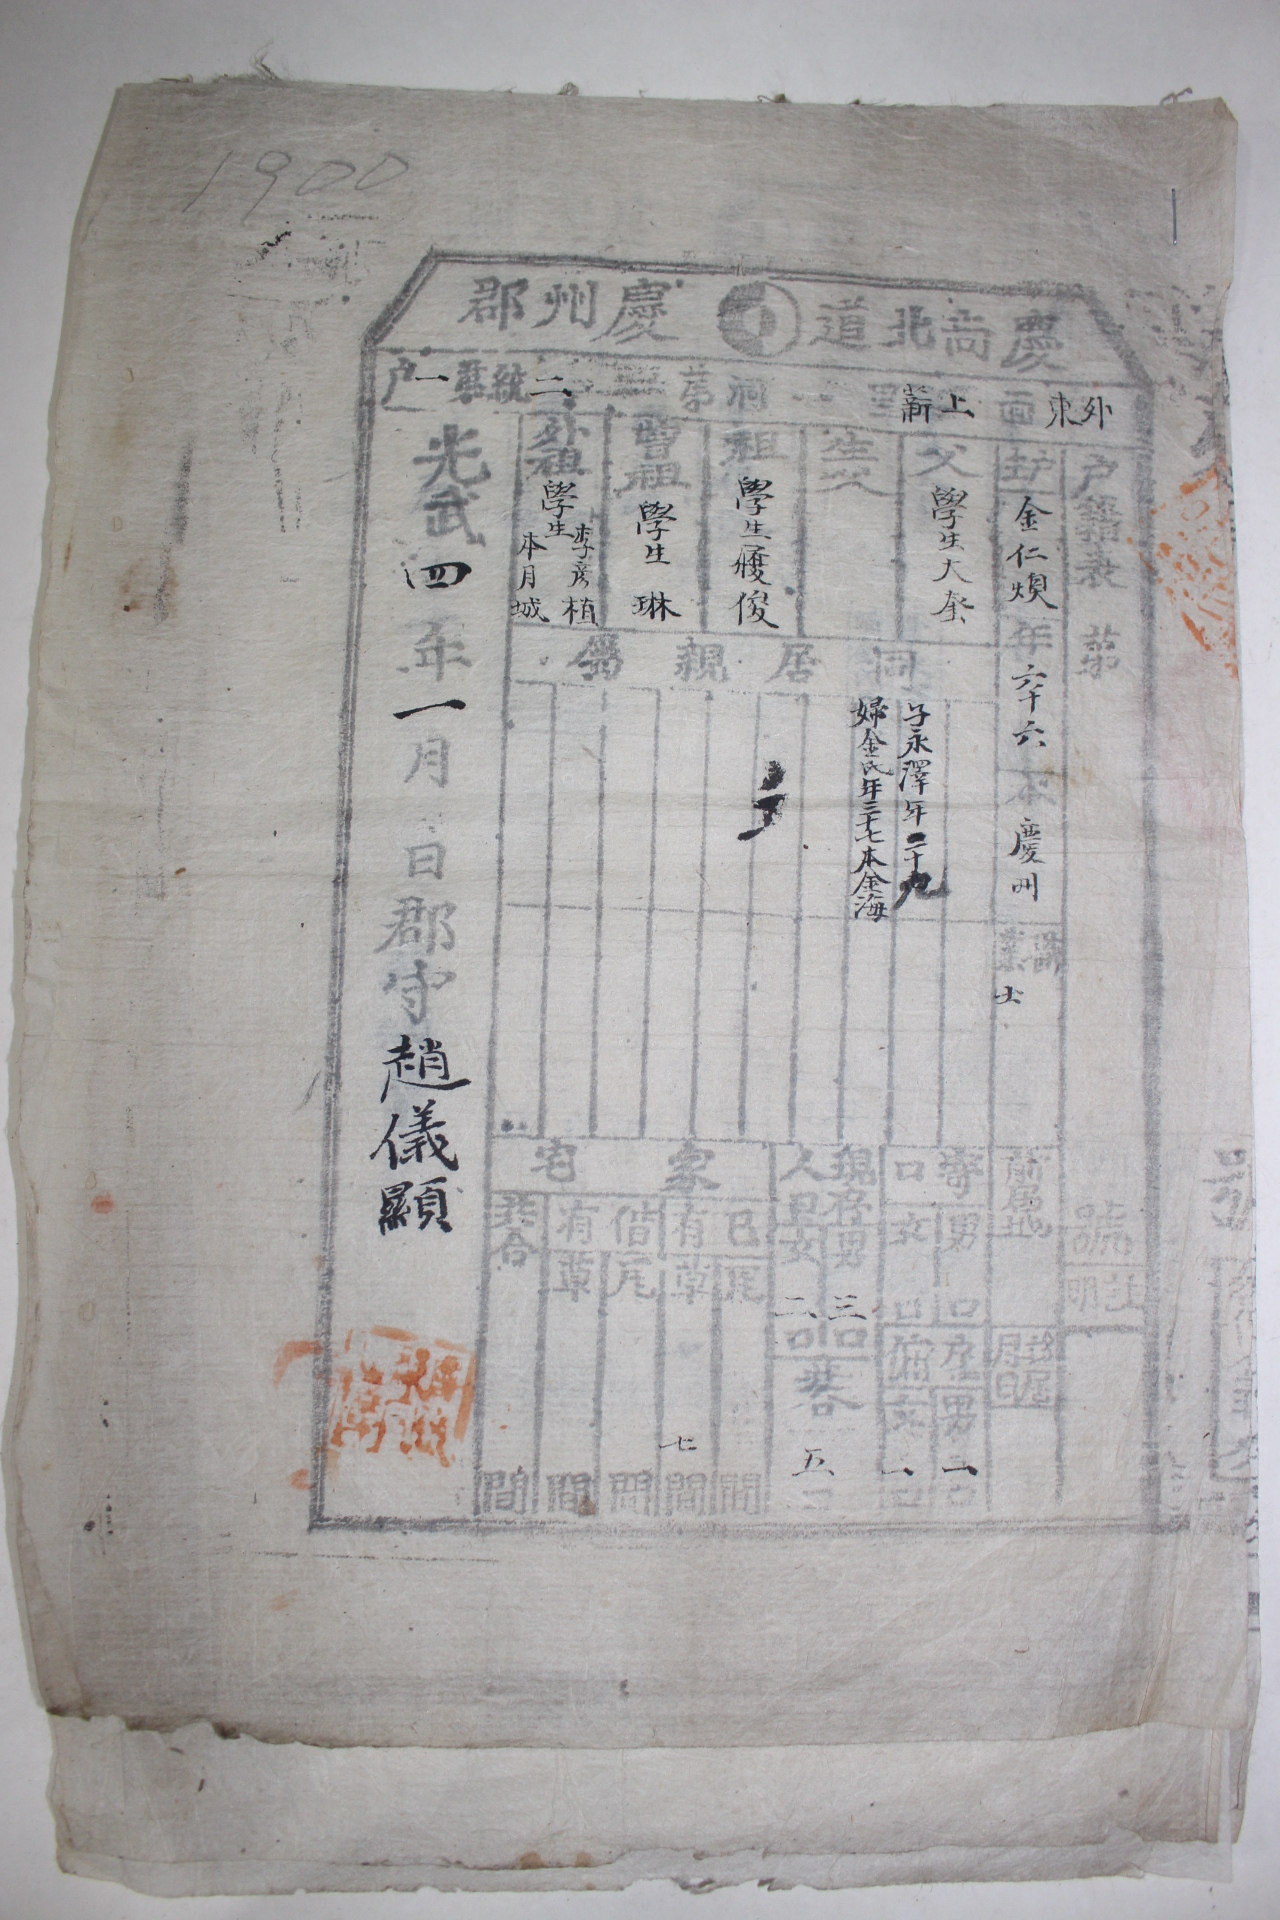 1900
慶尙北道 慶州郡
外東面 上薪里 洞 第 統 二 第 一 戶
戶籍表 第 號
註明
戶主 金仁煩 年 六十六 本 慶州 職業 士 前居地 移居月日
父 學生 大奎
生父
祖 學生 俊
曾祖 學生 琳
外祖 學生 李彦植 本月城
同居親屬
子永澤年二十九
婦金氏年三十七本金海
寄口 男 口 女 口
雇傭 男 一 口 女 一 口
現存人口 男 三 口 女 二 口
共合 五 口
家宅
己有 瓦 間 草 七 間
借有 瓦 間 草 間
共合 間
光武四年一月 日郡守趙儀顯